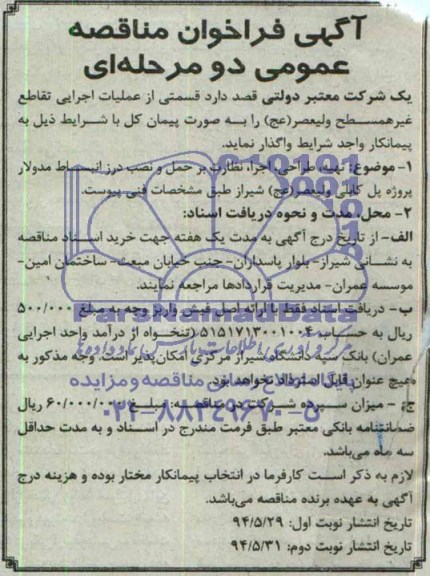 آگهی فراخوان مناقصه
عمومی دو مرحله‌ای
یک شرکت معتبر دولتی قصد دارد قسمتی از عملیات اجرایی تقاطع
غیرهمسطح ولیعصر(عج) را به صورت پیمان کل با شرایط ذیل به
پیمانکار واجد شرایط واگذار نماید.
۱- موضوع: تهیه، طراحی، اجرا، نظارت بر حمل و نصب درز انبساط مدولار
پروژه پل کابلی ولیعصر(عج) شیراز طبق مشخصات فنی پیوست.
۲- محل، مدت و نحوه دریافت اسناد:
الف- از تاریخ درج آگهی به مدت یک هفته جهت خرید اسناد مناقصه
به نشانی شیراز- بلوار پاسداران- جنب خیابان مبعث- ساختمان امین-
موسسه عمران- مدیریت قراردادها مراجعه نمایند.
ب- دریافت اسناد فقط با ارائه اصل فیش واریز وجه به مبلغ ۵۰۰/۰۰۰
ریال به حساب (تنخواه از درآمد واحد اجرایی
عمران) بانک سپه دانشگاه شیراز مرکزی امکان‌پذیر است. وجه مذکور به
هیچ عنوان قابل استرداد نخواهد بود.
ج- میزان سپرده شرکت در مناقصه: مبلغ ۶۰/۰۰۰/۰۰۰ ریال
ضمانتنامه بانکی معتبر طبق فرمت مندرج در اسناد و به مدت حداقل
سه ماه می‌باشد.
لازم به ذکر است کارفرما در انتخاب پیمانکار مختار بوده و هزینه درج
آگهی به عهده برنده مناقصه می‌باشد.
تاریخ انتشار نوبت اول: ۹۴/۵/۲۹
تاریخ انتشار نوبت دوم: ۹۴/۵/۳۱
پایگاه اطلاع رسانی مناقصه و مزایده
۰۲۱-۸۸۳۴۹۶۷۰-۵